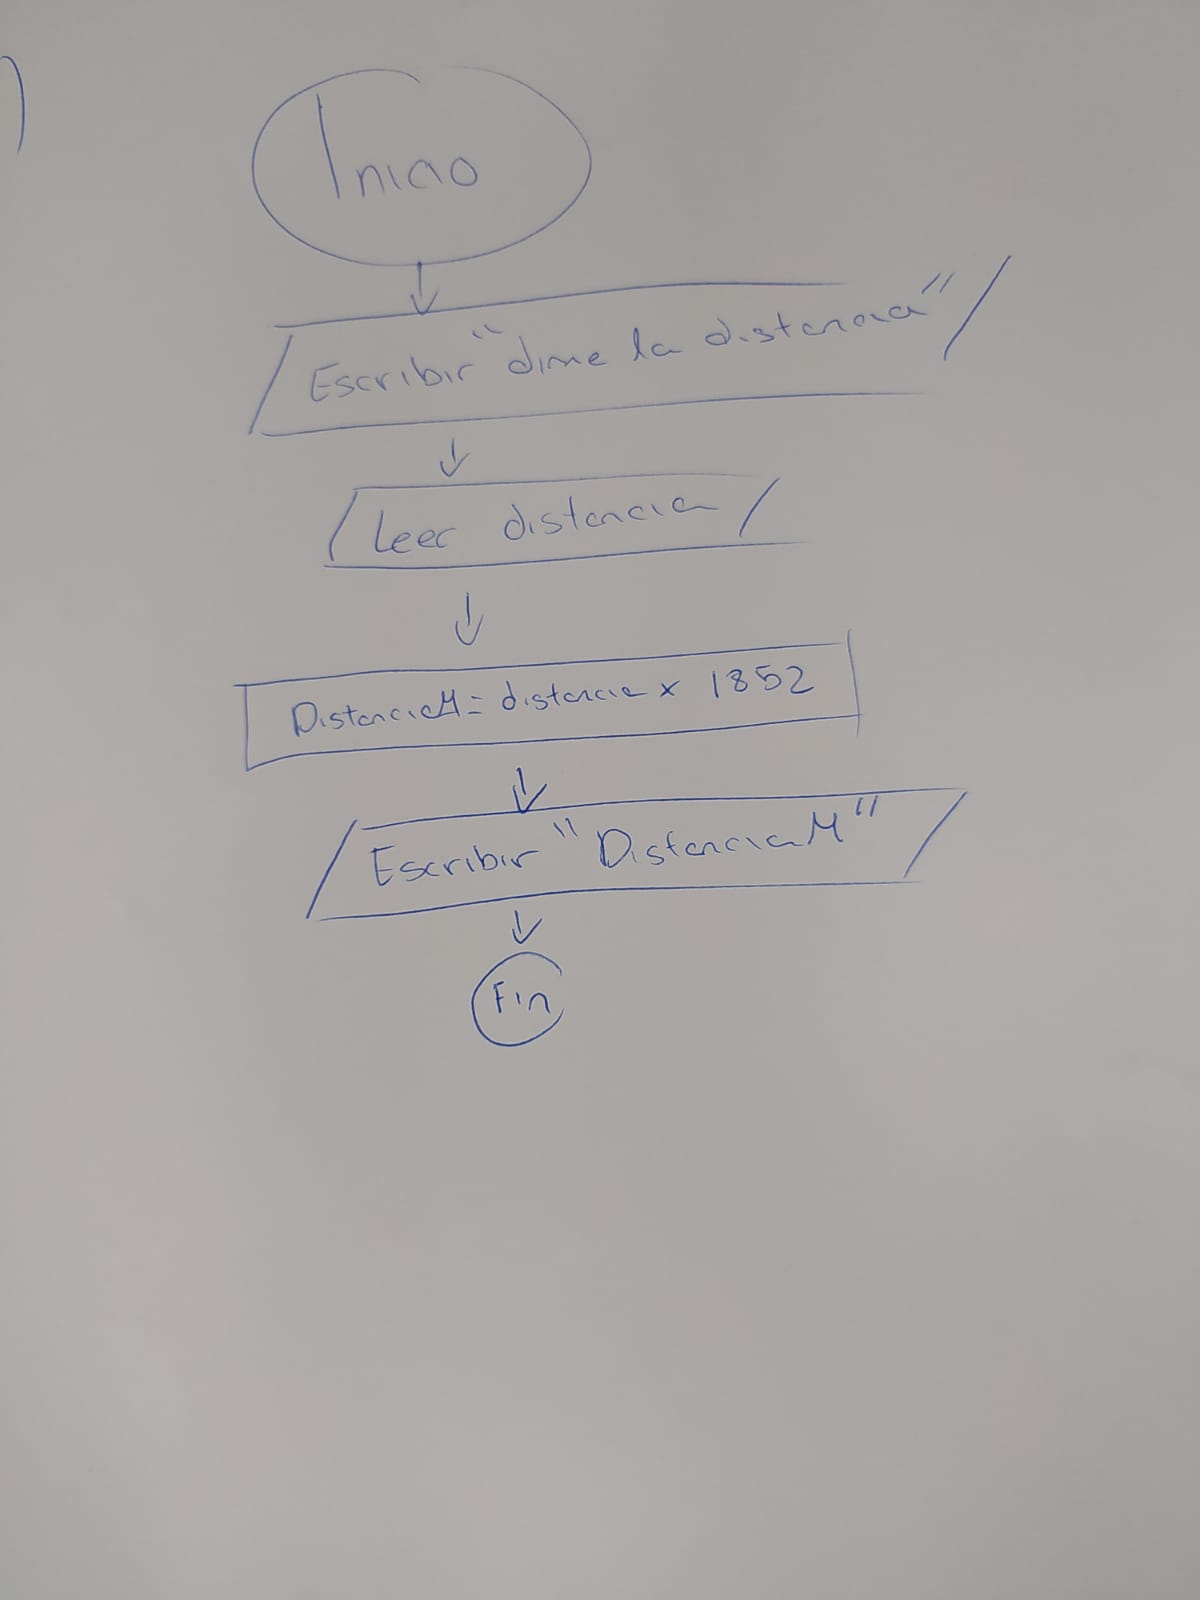 )
Inicio
Escribir "dime la distancia"
Leer distancia
DistanciaM = distancia x 1852
Escribir "DistanciaM"
Fin